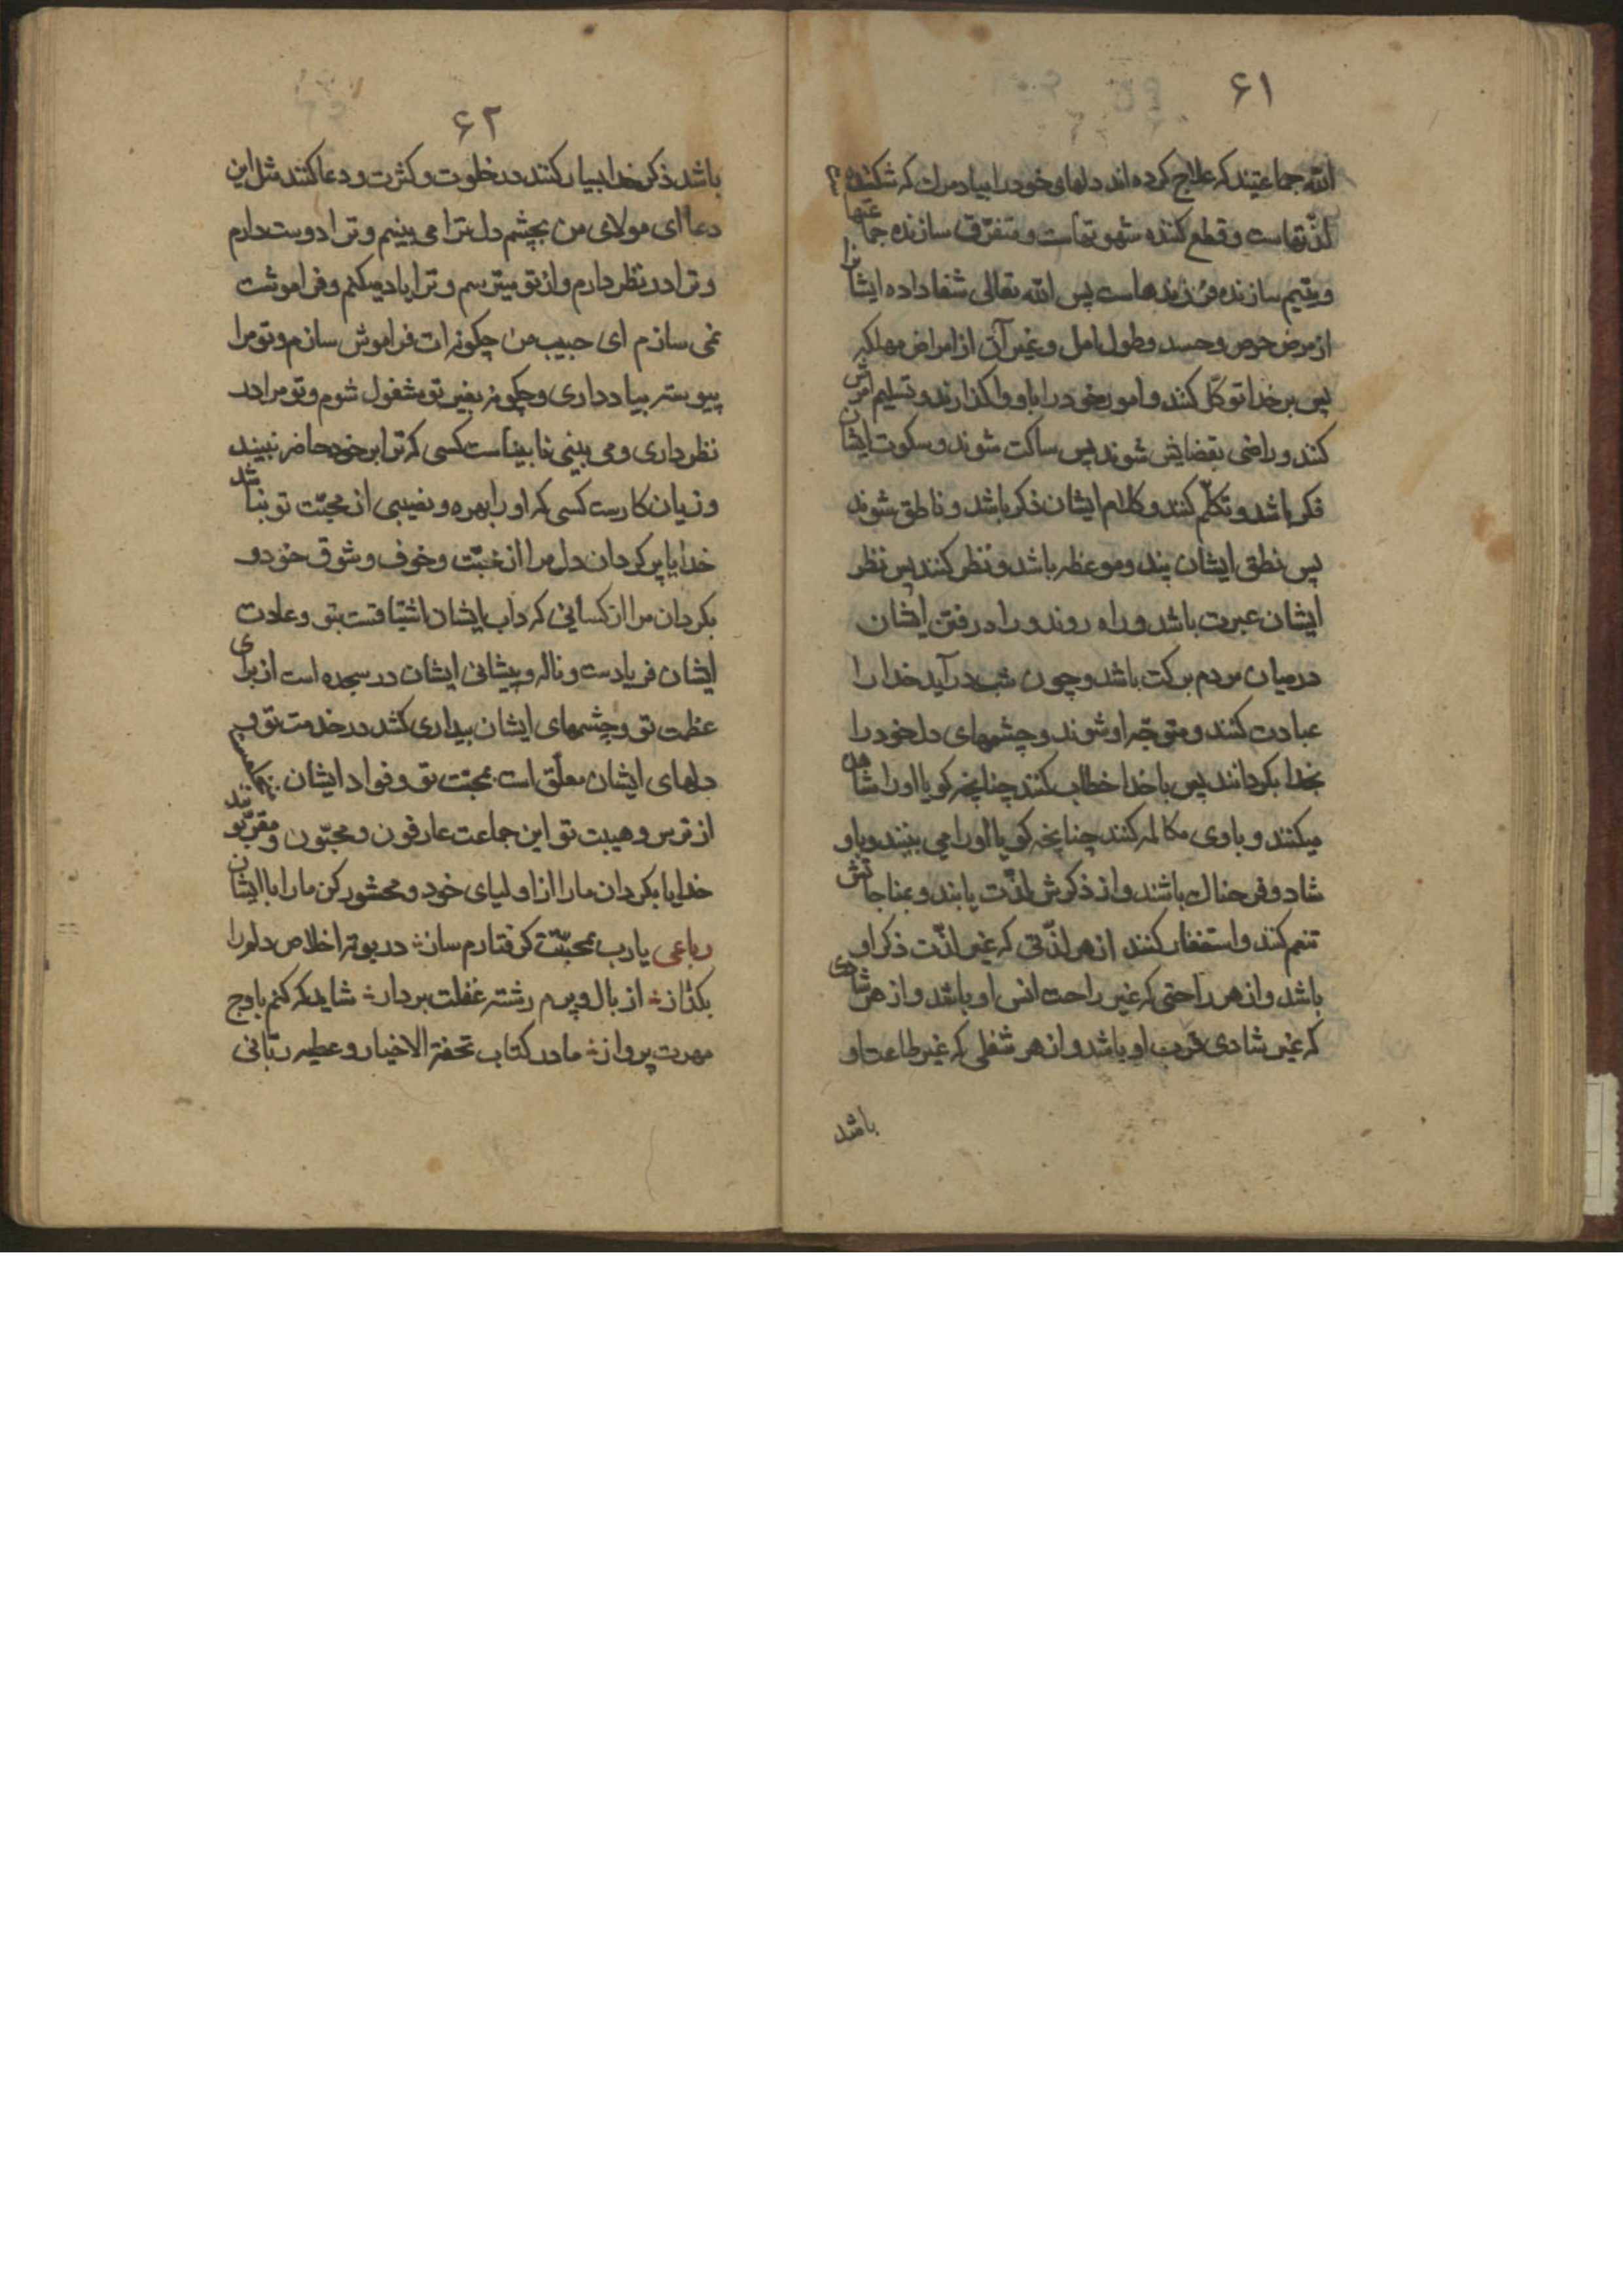 ۶۱
الله جماعتیند که علاج کرده اند دلهای خود را بیاد مرک که شکننده
لذّتهاست و قطع کننده شهوتهاست و متفرّق سازنده جماعتها
و یتیم سازنده فرزندهاست پس الله تعالی شفا داده ایشانرا
از مرض حرص و حسد و طول امل و غیر آن از امراض مهلکه
پس بر خدا توکّل کنند و امور خود را باو واکذارند و تسلیم امرش
کنند و راضی بقضایش شوند پس ساکت شوند و سکوت ایشان
فکر باشد و تکلّم کنند و کلام ایشان ذکر باشد و ناطق شوند
پس نطق ایشان پند و موعظه باشد و نظر کنند پس نظر
ایشان عبرت باشد و راه روند و راه رفتن ایشان
در میان مردم برکت باشد و چون شب در آید خدا را
عبادت کنند و متوجّه او شوند و چشمهای دل خود را
بخدا بکردانند پس با خدا خطاب کنند چنانچه کویا او را مشاهده
میکنند و با وی مکالمه کنند چنانچه کویا او را می بینند و باو
شاد و فرحناک باشند و از ذکرش لذّت یابند و بمناجاتش
تنعم کنند و استغفار کنند از هر لذّتی که غیر لذّت ذکر او
باشد و از هر راحتی که غیر راحت انس او باشد و از هر شادی
که غیر شادی قرب او باشد و از هر شغلی که غیر طاعت او
باشد
۶۲
باشد ذکر خدا بسیار کنند در خلوت و کثرت و دعا کنند مثل این
دعا ای مولای من بچشم دل ترا می بینم و ترا دوست دارم
و ترا در نظر دارم و از تو میترسم و ترا یاد میکنم و فراموشت
نمی سازم ای حبیب من چکونه ات فراموش سازم و تو مرا
پیوسته بیاد داری و چکونه بغیر تو مشغول شوم و تو مرا در
نظر داری و می بینی نابیناست کسی که ترا بر خود حاضر نبیند
و زیان کارست کسی که او را بهره و نصیبی از محبّت تو نباشد
خدایا پر کردان دل مرا از محبّت و خوف و شوق خود و
بکردان مرا از کسانی که داب ایشان اشتیاقست بتو و عادت
ایشان فریادست و ناله و پیشانی ایشان در سجده است از برای
عظمت تو و چشمهای ایشان بیداری کشد در خدمت تو و
دلهای ایشان معلّق است بمحبّت تو و فواد ایشان
از ترس و هیبت تو این جماعت عارفون و محبّون و مقرّبونند
خدایا بکردان ما را از اولیای خود و محشور کن ما را با ایشان
رباعی یا رب بمحبّتت کرفتارم ساز در بوته اخلاص دلم را
بکداز از بال و پرم رشته غفلت بردار شاید که کنم باوج
مهرت پرواز ما در کتاب تحفة الاخیار و عطیه ربّانی